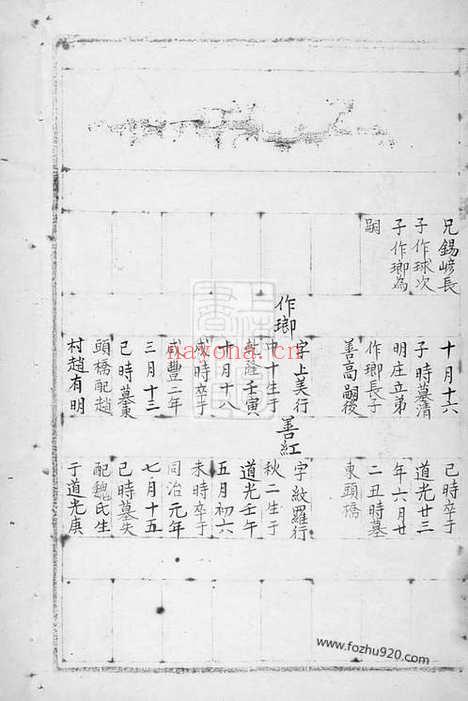 兄錫長
子作球次
子作瑯為
嗣
十月十六
子時墓清
明庄立弟
作瑯長子
善高嗣後
作瑯
字上美行
中十生于
乾隆壬寅
十月十八
戌時卒于
咸豐二年
三月十三
巳時墓東
頭橋配趙
村趙有明
巳時卒于
道光廿三
年六月廿
二丑時墓
東頭橋
善紅
字紋羅行
秋二生于
道光壬午
五月初六
未時卒于
同治元年
七月十五
巳時墓失
配魏氏生
于道光庚
nayona.cn
www.fozhu920.com